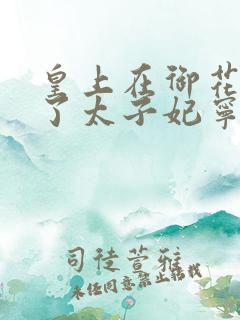 皇上在御花
了太子妃寧
司徒萱雅
未经同意禁止转载